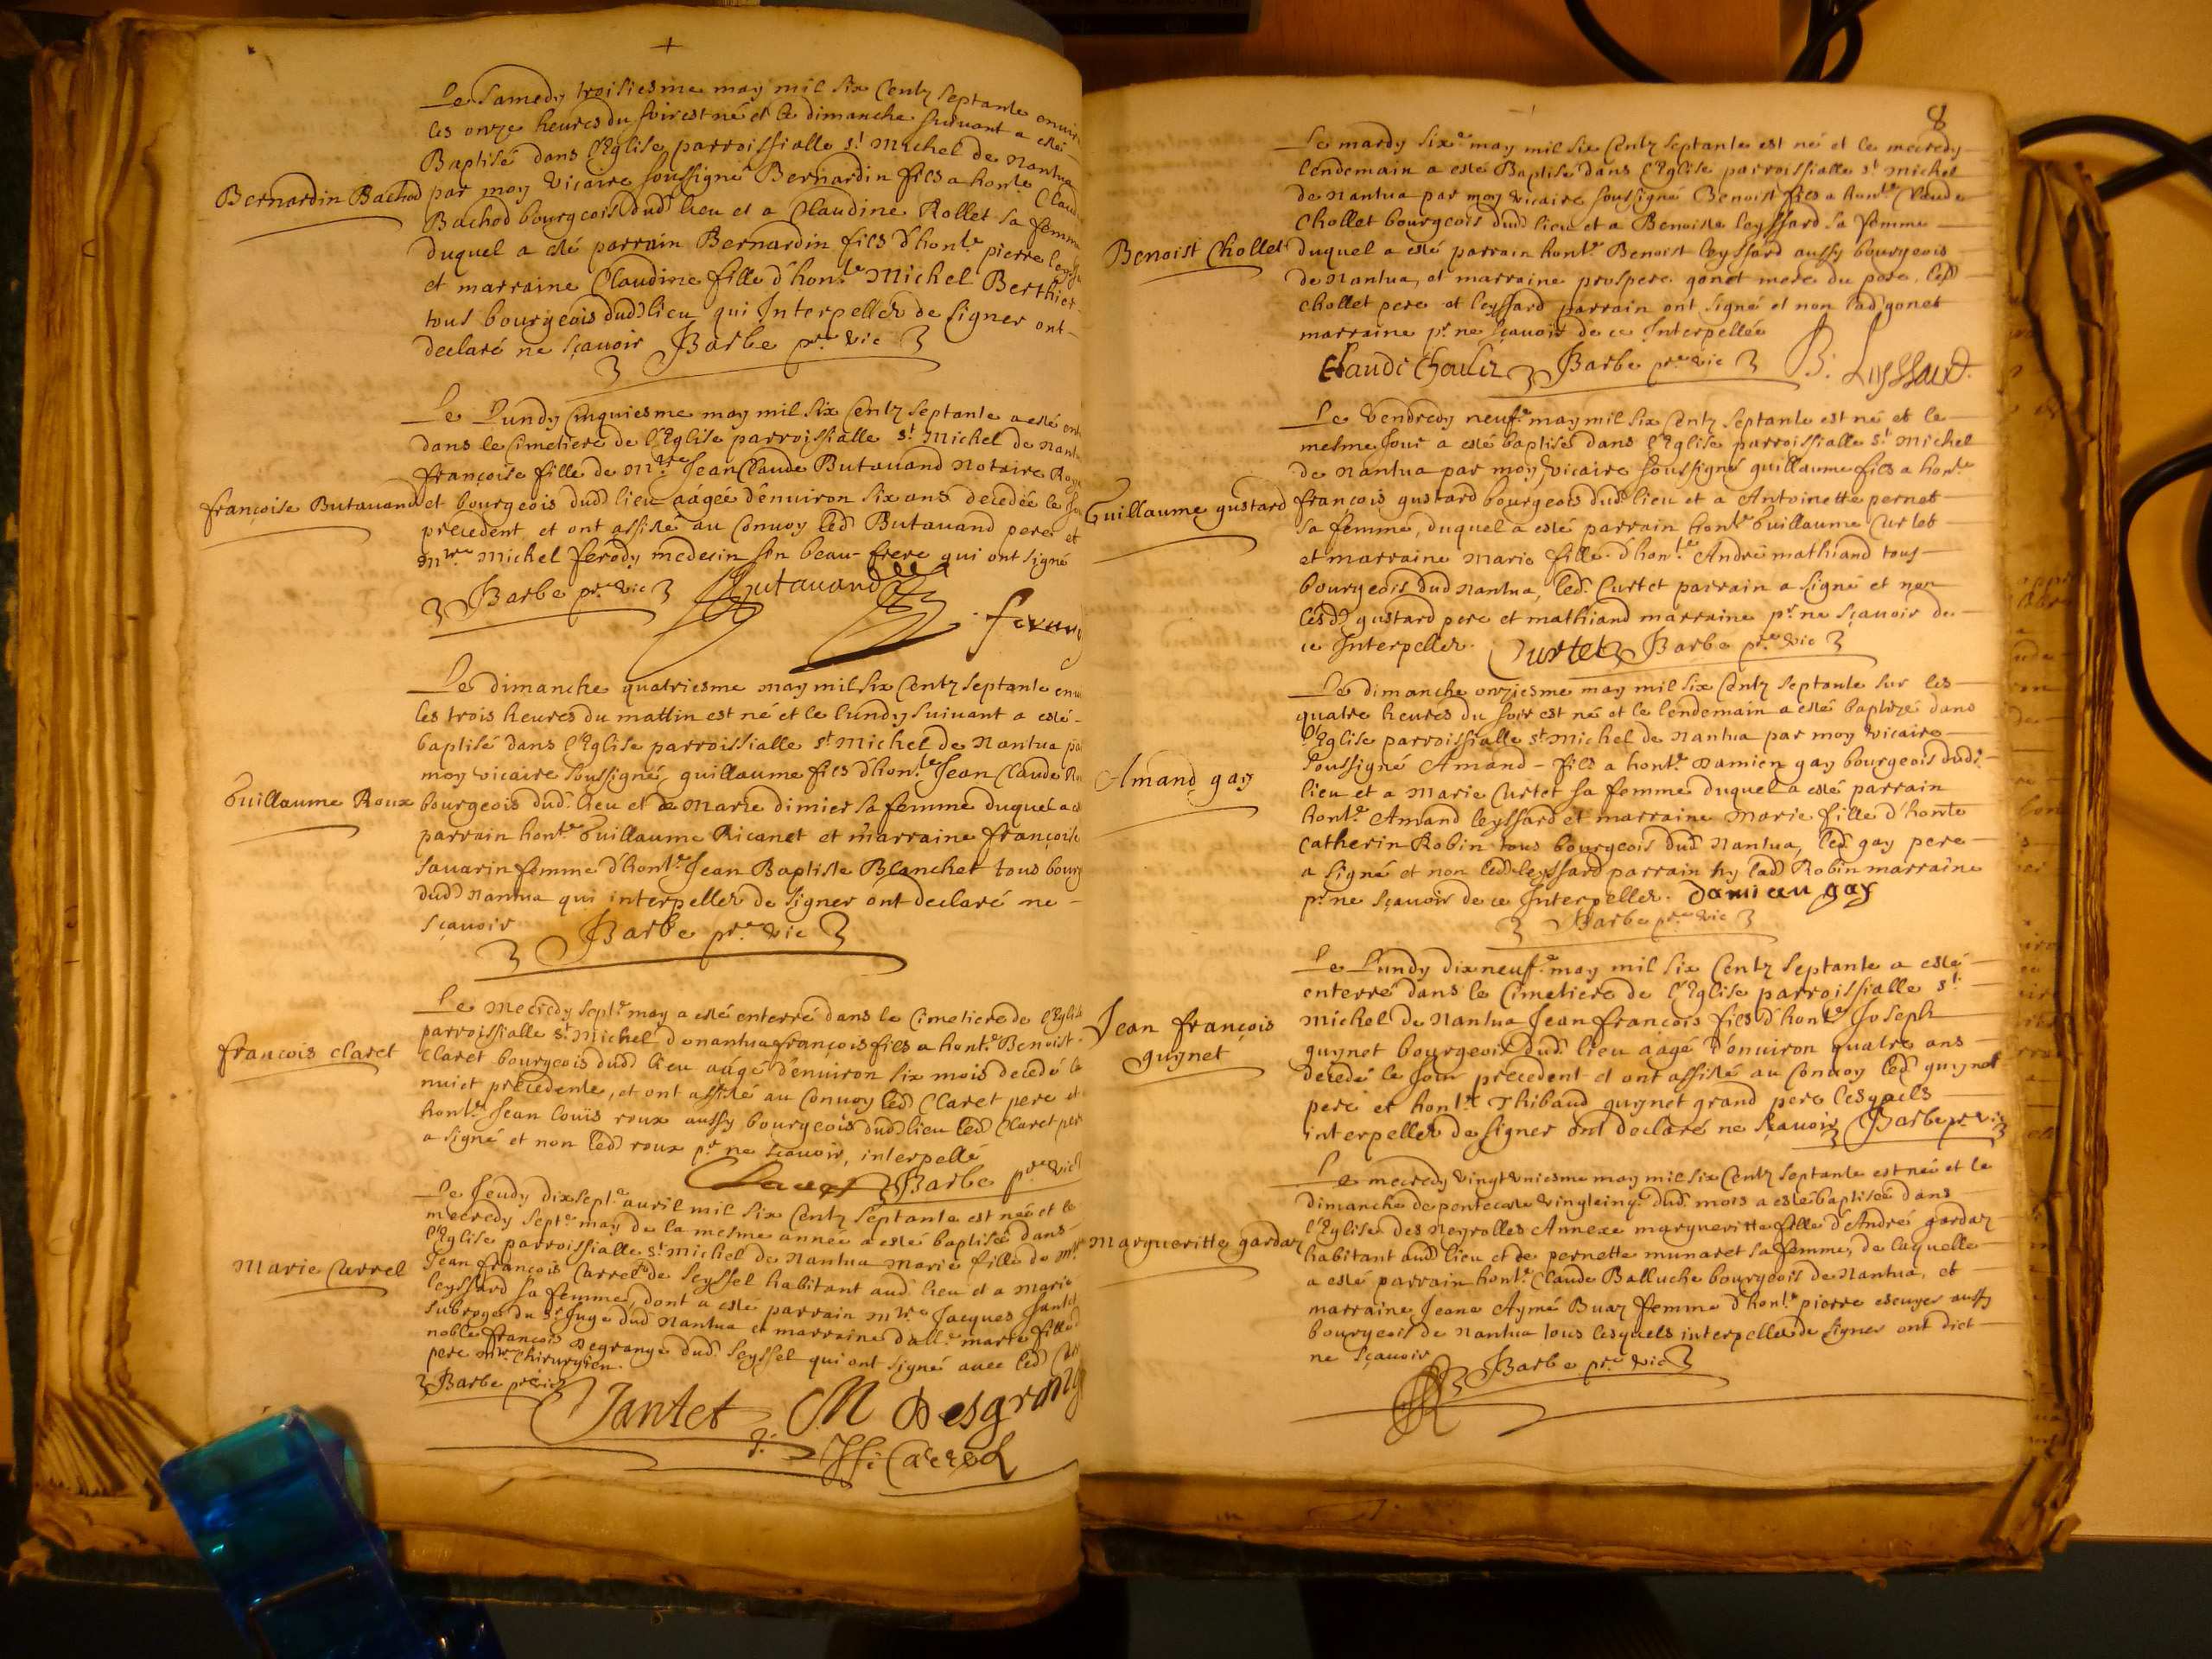 Le Samedy troisiesme may mil six Centz septante enuir
les onze heures du soir est né et le dimanche suiuant a esté
Baptisé dans l'Eglise parroissialle st Michel de Nantua
Bernardin Bachod
par moy vicaire soussigné Bernardin fils a honle Claud
Bachod bourgeois dud lieu et a Claudine Rollet sa femme
duquel a esté parrain Bernardin fils d'honle pierre
et marraine Claudine fille d'honle Michel Berthier
tous bourgeois dud lieu qui Interpellez de signer ont
declaré ne sçauoir Barbe pre vic
Le Lundy Cinquiesme may mil six Centz septante a esté ent
dans le Cimetiere de l'Eglise parroissialle st Michel de Nant
françoise fille de Mre Jean Claude Butauand Notaire Roya
françoise Butauand
et bourgeois dud lieu aágée d'enuiron six ans decedée le
precedent et ont assisté au Conuoy led Butauand pere et
Mre Michel ferody medecin son beau-frere qui ont signé
Barbe pre vic Butauand
Le dimanche quatriesme may mil six Centz septante enui
les trois heures du mattin est né et le lundy suiuant a esté
baptisé dans l'Eglise parroissialle st Michel de Nantua par
moy vicaire soussigné guillaume fils d'honle Jean Claude
Guillaume Roux
bourgeois dud lieu et de Marie dimier sa femme duquel a
parrain honle Guillaume Ricanet et marraine françoise
Sauarin femme d'honle Jean Baptiste Blanchet tous bourg
dud Nantua qui interpellez de signer ont declaré ne
sçauoir Barbe pre vic
Le mecredy septe may a esté enterré dans le Cimetiere de l'Eglise
parroissialle st Michel de nantua françois fils a honle Benoist
françois claret
Claret bourgeois dud lieu aágé d'enuiron six mois decedé la
nuict precedente, et ont assisté au Conuoy led Claret pere et
honle Jean Louis roux aussy bourgeois dud lieu led Claret per
a signé et non led roux pr ne sçauoir, interpellé
Claret Barbe pre vic
Le Jeudy dix septe auril mil six Centz septante est née et le
mecredy septe may de la mesme année a esté baptisée dans
l'Eglise parroissialle st Michel de Nantua Marie fille de Mre
Marie Carrel
Jean françois Carrel de Seyssel habitant aud lieu et a Marie
leyssard sa femme, dont a esté parrain Mre Jacques Jantet
subroge du sr Juge dud Nantua et marraine dalle marie fille d
noble françois Degrange dud Seyssel qui ont signé auec led
pere Mre Chirurgien.
Barbe pre vic
Jantet M Desgrange
Carrel
8
Le mardy sixe may mil six Centz septante est né et le mecredy
lendemain a esté Baptisé dans l'Eglise parroissialle st michel
de Nantua par moy vicaire soussigné Benoist fils a honle Claude
Chollet bourgeois dud lieu et a Benoiste leyssard sa femme
Benoist Chollet
duquel a esté parrain honle Benoist leyssard aussy bourgeois
de Nantua, et marraine prospere gonet mere du pere. lesd
Chollet pere et leyssard parrain ont signé et non lad gonet
marraine pr ne sçauoir de ce Interpellée
Barbe pre vic
Le Vendredy neufe may mil six Centz septante est né et le
mesme Jour a esté baptisé dans l'Eglise parroissialle st Michel
de Nantua par moy vicaire soussigné guillaume fils a honle
Guillaume gustard
françois gustard bourgeois dud lieu et a Antoinette pernet
sa femme, duquel a esté parrain honle Guillaume Curtet
et marraine marie fille d'honle André mathiand tous
bourgeois dud Nantua, led. Curtet parrain a signé et non
lesd gustard pere et mathiand marraine pr ne sçauoir de
ce Interpellez. Curtet Barbe pre vic
Le dimanche onziesme may mil six Centz septante sur les
quatre heures du soir est né et le lendemain a esté baptizé dans
l'Eglise parroissialle st Michel de Nantua par moy vicaire
Amand gay
soussigné Amand fils a honle Damien gay bourgeois dud.
lieu et a Marie Curtet sa femme duquel a esté parrain
honle Amand leyssard et marraine Marie fille d'honle
Catherin Robin tous bourgeois dud Nantua, led. gay pere
a signé et non led leyssard parrain ny lad Robin marraine
pr ne sçauoir de ce Interpellez. Damian gay
Barbe pre vic
Le Lundy dixneufe may mil six Centz septante a esté
enterré dans le Cimetiere de l'Eglise parroissialle st
Jean françois
guynet
Michel de Nantua Jean françois fils d'honle Joseph
guynet bourgeois dud. lieu aágé d'enuiron quatre ans
decedé le Jour precedent et ont assisté au Conuoy led guynet
pere et honle Thibaud guynet grand pere lesquels
interpellez de signer ont declaré ne sçauoir Barbe pr vic
Le mecredy vingtvniesme may mil six Centz septante est née et le
dimanche de pentecoste vingtcinqe dud. mois a esté baptisée dans
l'Eglise des Neyrolles Annexe margueritte fille d'André gardaz
Margueritte gardaz
habitant aud lieu et de pernette munaret sa femme, de laquelle
a esté parrain honle Claude Balluche bourgeois de Nantua, et
marraine Jeane Aymé Buaz femme d'honle pierre escuyer aussy
bourgeois de Nantua tous lesquels interpellez de signer ont dict
ne sçauoir
Barbe pre vic